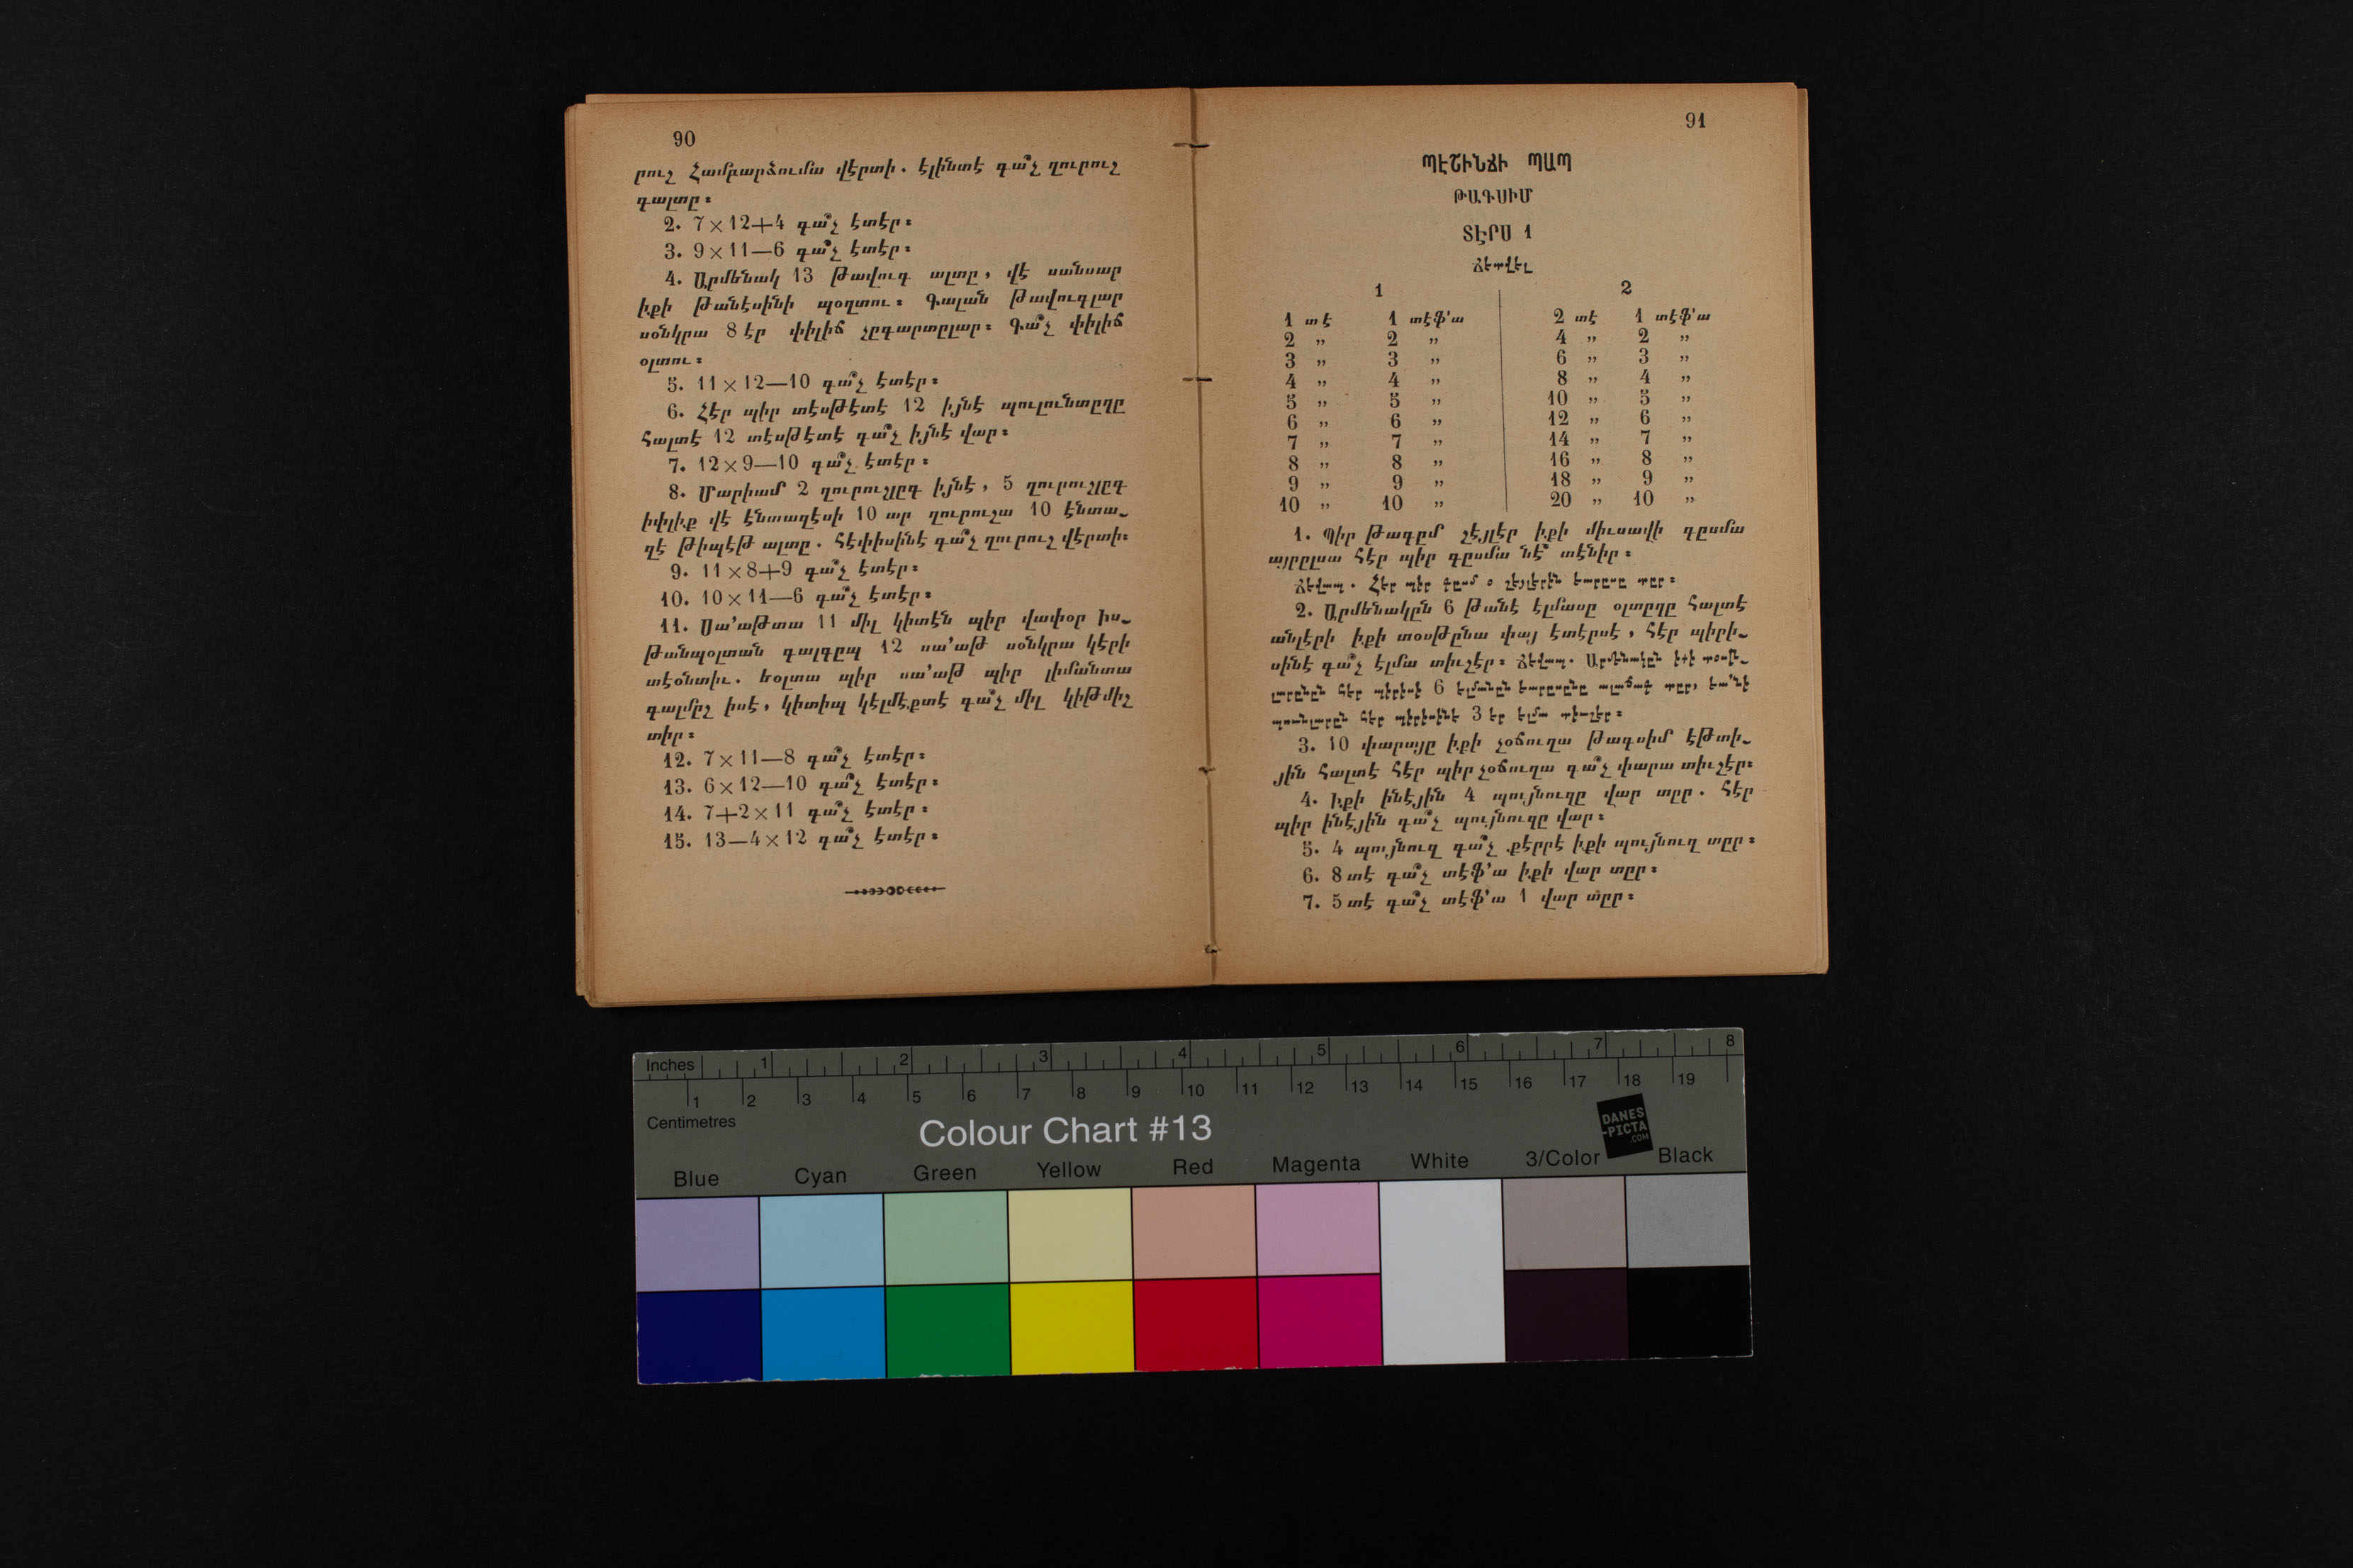 90
րուշ Համբարձումա վէրտի. էլինտէ գա՞չ ղուրուշ
գալտը։
2. 7×12+4 գա՞չ էտէր։
3. 9×11—6 գա՞չ էտէր։
4. Արմենակ 13 թավուգ ալտը, վէ սանսար
իքի թանէսինի պօղտու։ Գալան թավուգլար
սօնկրա 8 էր փիլիճ չըգարտըլար։ Գա՞չ փիլիճ
օլտու։
5. 11×12—10 գա՞չ էտէր։
6. Հէր պիր տէսթէտէ 12 իյնէ պուլունտըղը
հալտէ 12 տէսթէտէ գա՞չ իյնէ վար։
7. 12×9—10 գա՞չ էտէր։
8. Մարիամ 2 ղուրուշլըգ իյնէ, 5 ղուրուշլըգ
իփլիք վէ էնտազէսի 10 ար ղուրուշա 10 էնտա֊
զէ թիպէթ ալտը. հէփիսինէ գա՞չ ղուրուշ վէրտի։
9. 11×8+9 գա՞չ էտէր։
10. 10×11—6 գա՞չ էտէր։
11. Սա՚աթտա 11 միլ կիտէն պիր վափօր իս֊
թանպօլտան գալգըպ 12 սա՚աթ սօնկրա կէրի
տէօնտիւ. եօլտա պիր սա՚աթ պիր լիմանտա
գալմըշ իսէ, կիտիպ կէլմէքտէ գա՞չ միլ կիթմիշ
տիր։
12. 7×11—8 գա՞չ էտէր։
13. 6×12—10 գա՞չ էտէր։
14. 7+2×11 գա՞չ էտէր։
15. 13—4×12 գա՞չ էտէր։
91
ՊԷՇԻՆՃԻ ՊԱՊ
ԹԱԳՍԻՄ
ՏԷՐՍ 1
Ճետվել
1 2
1 տէ 1 տէֆ՚ա 2 տէ 1 տէֆ՚ա
2 „ 2 „ 4 „ 2 „
3 „ 3 „ 6 „ 3 „
4 „ 4 „ 8 „ 4 „
5 „ 5 „ 10 „ 5 „
6 „ 6 „ 12 „ 6 „
7 „ 7 „ 14 „ 7 „
8 „ 8 „ 16 „ 8 „
9 „ 9 „ 18 „ 9 „
10 „ 10 „ 20 „ 10 „
1. Պիր թագըմ շէյլէր իքի միւսավի գըսմա
այրըլսա հէր պիր գըսմա նէ՞ տէնիր։
Ճեվապ. Հեր պիր գըսմ օ շեյլերին եարըսը տըր։
2. Արմենակըն 6 թանէ էլմասը օլտըղը հալտէ
անլէրի իքի տօսթընա փայ էտէրսէ, հէր պիրի֊
սինէ գա՞չ էլմա տիւշէր։ Ճեվապ. Արմենակըն իքի տօսթ֊
լարընըն հեր պիրիսի 6 ելմանըն եարըսընը ալաճագ տըր, եա՚նի
պունլարըն հեր պիրիսինե 3 եր ելմա տիւշեր։
3. 10 փարայը իքի չօճուղա թագսիմ էթտի֊
յին հալտէ հէր պիր չօճուղա գա՞չ փարա տիւշէր։
4. Իքի ինէյին 4 պույնուղը վար տըր. հէր
պիր ինէյին գա՞չ պույնուղը վար։
5. 4 պույնուղ գա՞չ քէրրէ իքի պույնուղ տըր։
6. 8 տէ գա՞չ տէֆ՚ա իքի վար տըր։
7. 5 տէ գա՞չ տէֆ՚ա 1 վար տըր։
Inches 1 2 3 4 5 6 7 8
1 2 3 4 5 6 7 8 9 10 11 12 13 14 15 16 17 18 19
Centimetres
Colour Chart #13
DANES
-PICTA
.COM
Blue Cyan Green Yellow Red Magenta White 3/Color Black